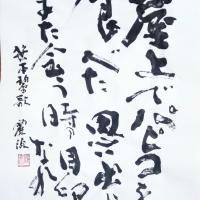 屋上でパピコを
食べた思い出
また会う時の目印なれ
笹本碧歌